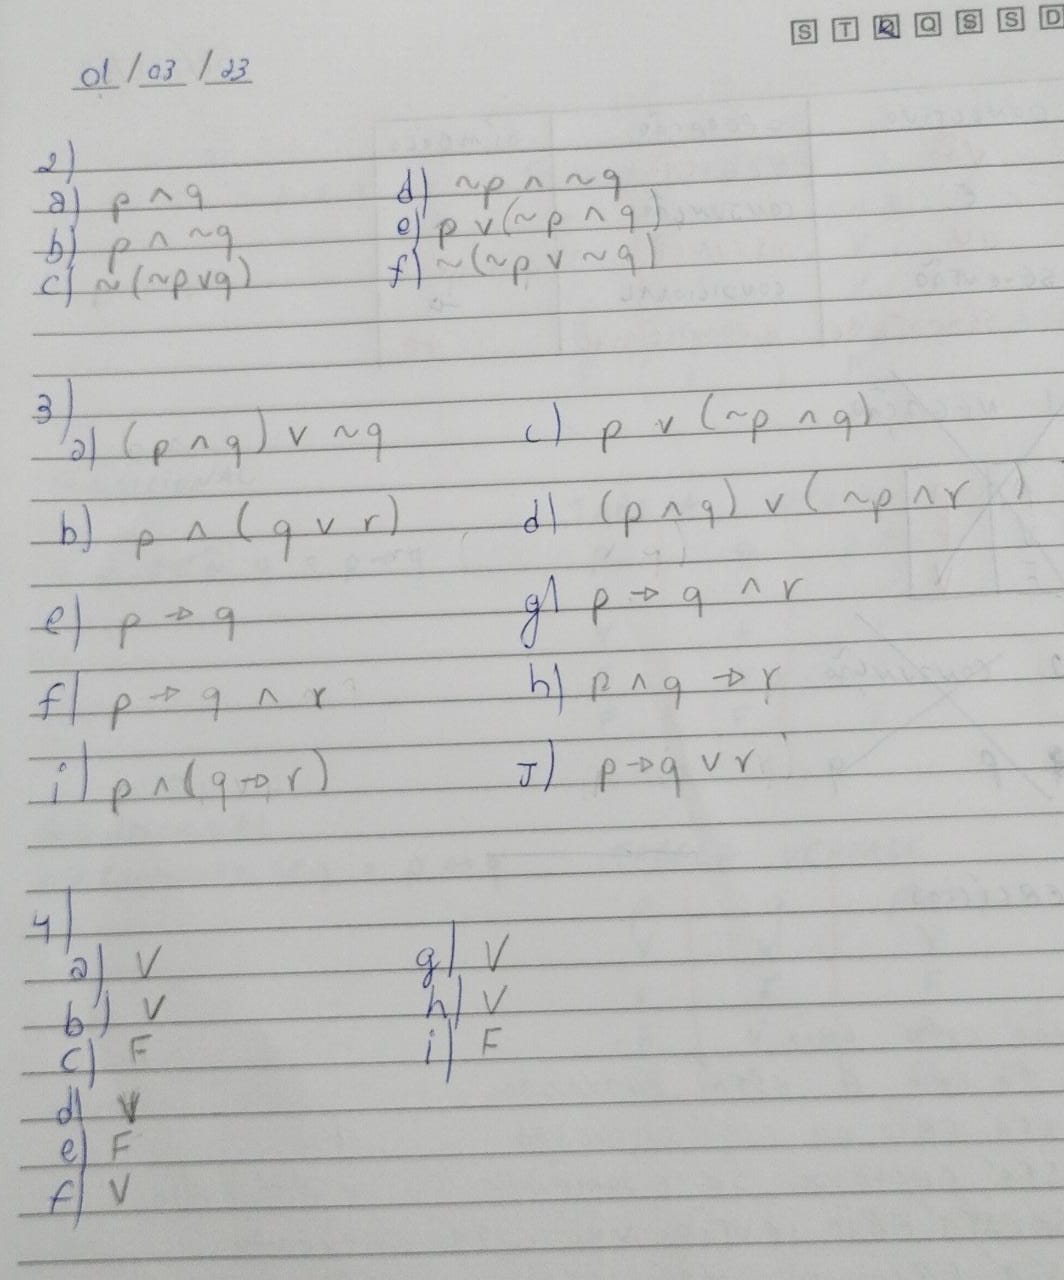 S T Q Q S S D
01/03/23
2)
a) p ∧ q
d) ~p ∧ ~q
b) p ∧ ~q
e) p ∨ (~p ∧ q)
c) ~(~p ∨ q)
f) ~(~p ∨ ~q)
3)
a) (p ∧ q) ∨ ~q
c) p ∨ (~p ∧ q)
b) p ∧ (q ∨ r)
d) (p ∧ q) ∨ (~p ∧ r)
e) p → q
g) p → q ∧ r
f) p → q ∧ r
h) p ∧ q → r
i) p ∧ (q → r)
J) p → q ∨ r
4)
a) V
g) V
b) V
h) V
c) F
i) F
d) V
e) F
f) V